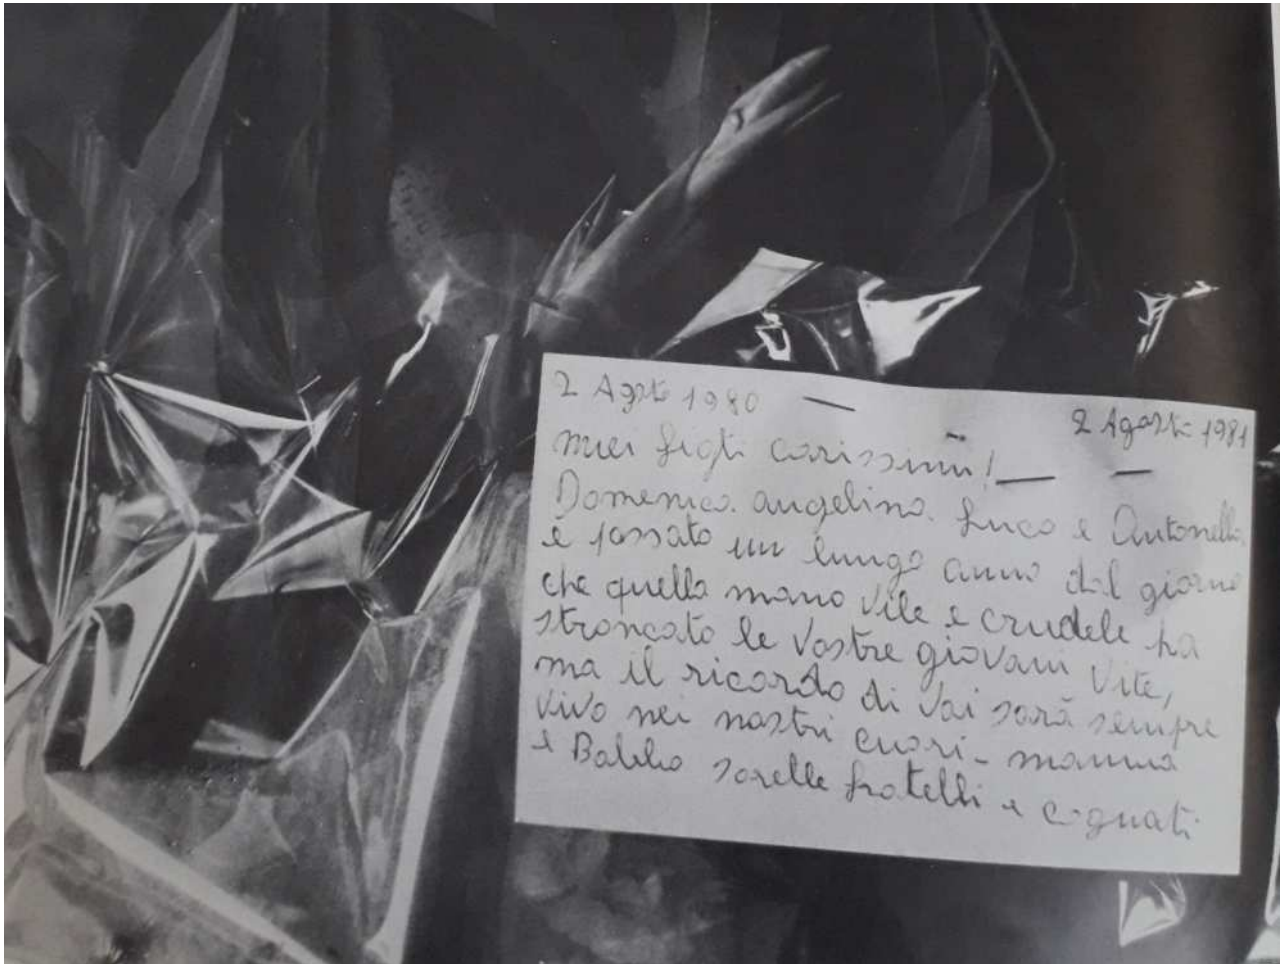 2 Agsto 1980 — 2 Agosto 1981
miei figli carissimi! — —
Domenica. Angelina. Luca e Antonella
è passato un lungo anno dal giorno
che quella mano vile e crudele ha
stroncato le vostre giovani vite,
ma il ricordo di voi sarà sempre
vivo nei nostri cuori - mamma
e Babbo sorelle fratelli e cognati